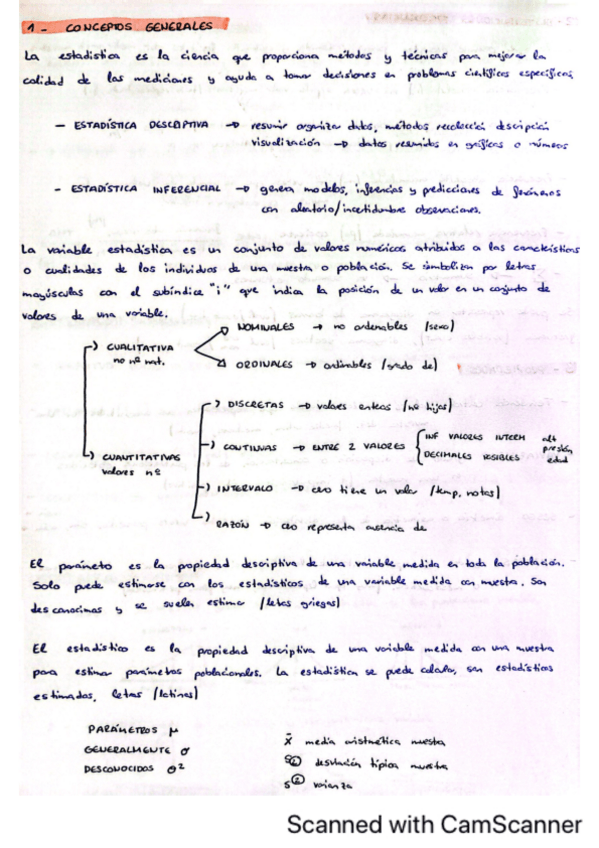 1 - CONCEPTOS GENERALES
La estadística es la ciencia que proporciona métodos y técnicas para mejorar la
calidad de las mediciones y ayuda a tomar decisiones en problemas científicos específicos
- ESTADÍSTICA DESCRIPTIVA → resumir organizar datos, métodos recolección descripción
visualización → datos resumidos en gráficos o números
- ESTADÍSTICA INFERENCIAL → genera modelos, inferencias y predicciones de fenómenos
con aleatorio/incertidumbre observaciones.
La variable estadística es un conjunto de valores numéricos atribuidos a las características
o cualidades de los individuos de una muestra o población. Se simbolizan por letras
mayúsculas con el subíndice "i" que indica la posición de un valor en un conjunto de
valores de una variable.
NOMINALES → no ordenables (sexo)
CUALITATIVA
no nº nat.
ORDINALES → ordinables (grado de)
DISCRETAS → valores enteros (nº hijos)
CONTINUAS → ENTRE 2 VALORES
INF VALORES INTERM
DECIMALES POSIBLES
alt
presión
edad
CUANTITATIVAS
valores nº
INTERVALO → cero tiene un valor (temp, notas)
RAZÓN → cero representa ausencia de
El parámetro es la propiedad descriptiva de una variable medida en toda la población.
Solo puede estimarse con los estadísticos de una variable medida con muestra. Son
desconocimas y se suelen estimar (letras griegas)
El estadístico es la propiedad descriptiva de una variable medida con una muestra
para estimar parámetros poblacionales. La estadística se puede calcular, son estadísticos
estimados, letras (latinas)
PARÁMETROS μ
GENERALMENTE σ
DESCONOCIDOS σ²
x̄ media aritmética muestra
S desviación típica muestra
S² varianza
Scanned with CamScanner